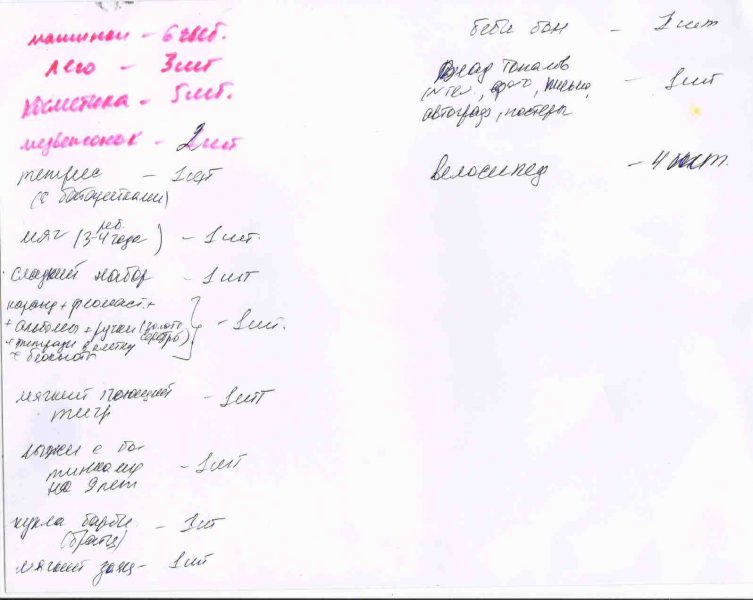 машинки – 6 шт.
лего – 3 шт
косметика – 5 шт.
медвежонок – 2 шт
тетрис – 1 шт
(с батарейками)
мяч (3-4 года) – 1 шт.
реб.
сладкий набор – 1 шт
каранд + фломаст. +
+ альбомы + ручки (золото
+ тетради в клетку серебро)
– 1 шт.
+ блокнот
мягкий поющий – 1 шт
тигр
лыжи с бо-
тинками – 1 шт
на 9 лет
кукла барби – 1 шт
(братц)
мягкий заяц – 1 шт
беби бон – 1 шт
фото, письмо, – 1 шт
автограф, постеры
велосипед – 4 шт.